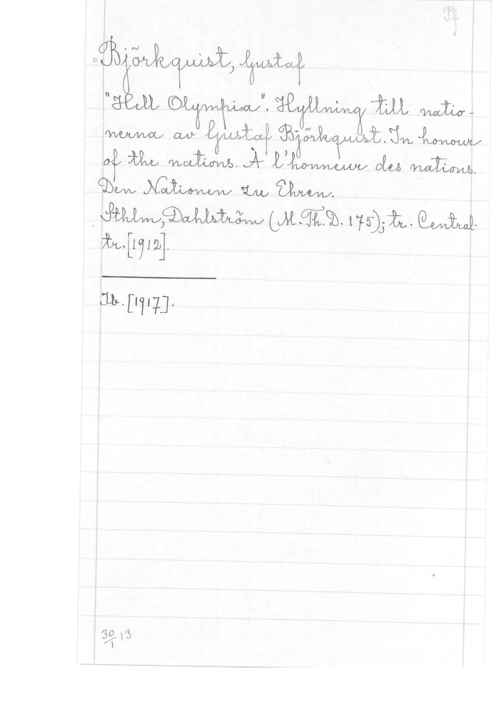 Pf
Björkquist, Gustaf
"Hell Olympia". Hyllning till natio-
nerna av Gustaf Björkquist. In honour
of the nations. À l'honneur des nations.
Den Nationen zu Ehren.
Sthlm, Dahlström (M. Th. D. 175); tr. Central-
tr. [1912].
Ib. [1917].
30/1 13